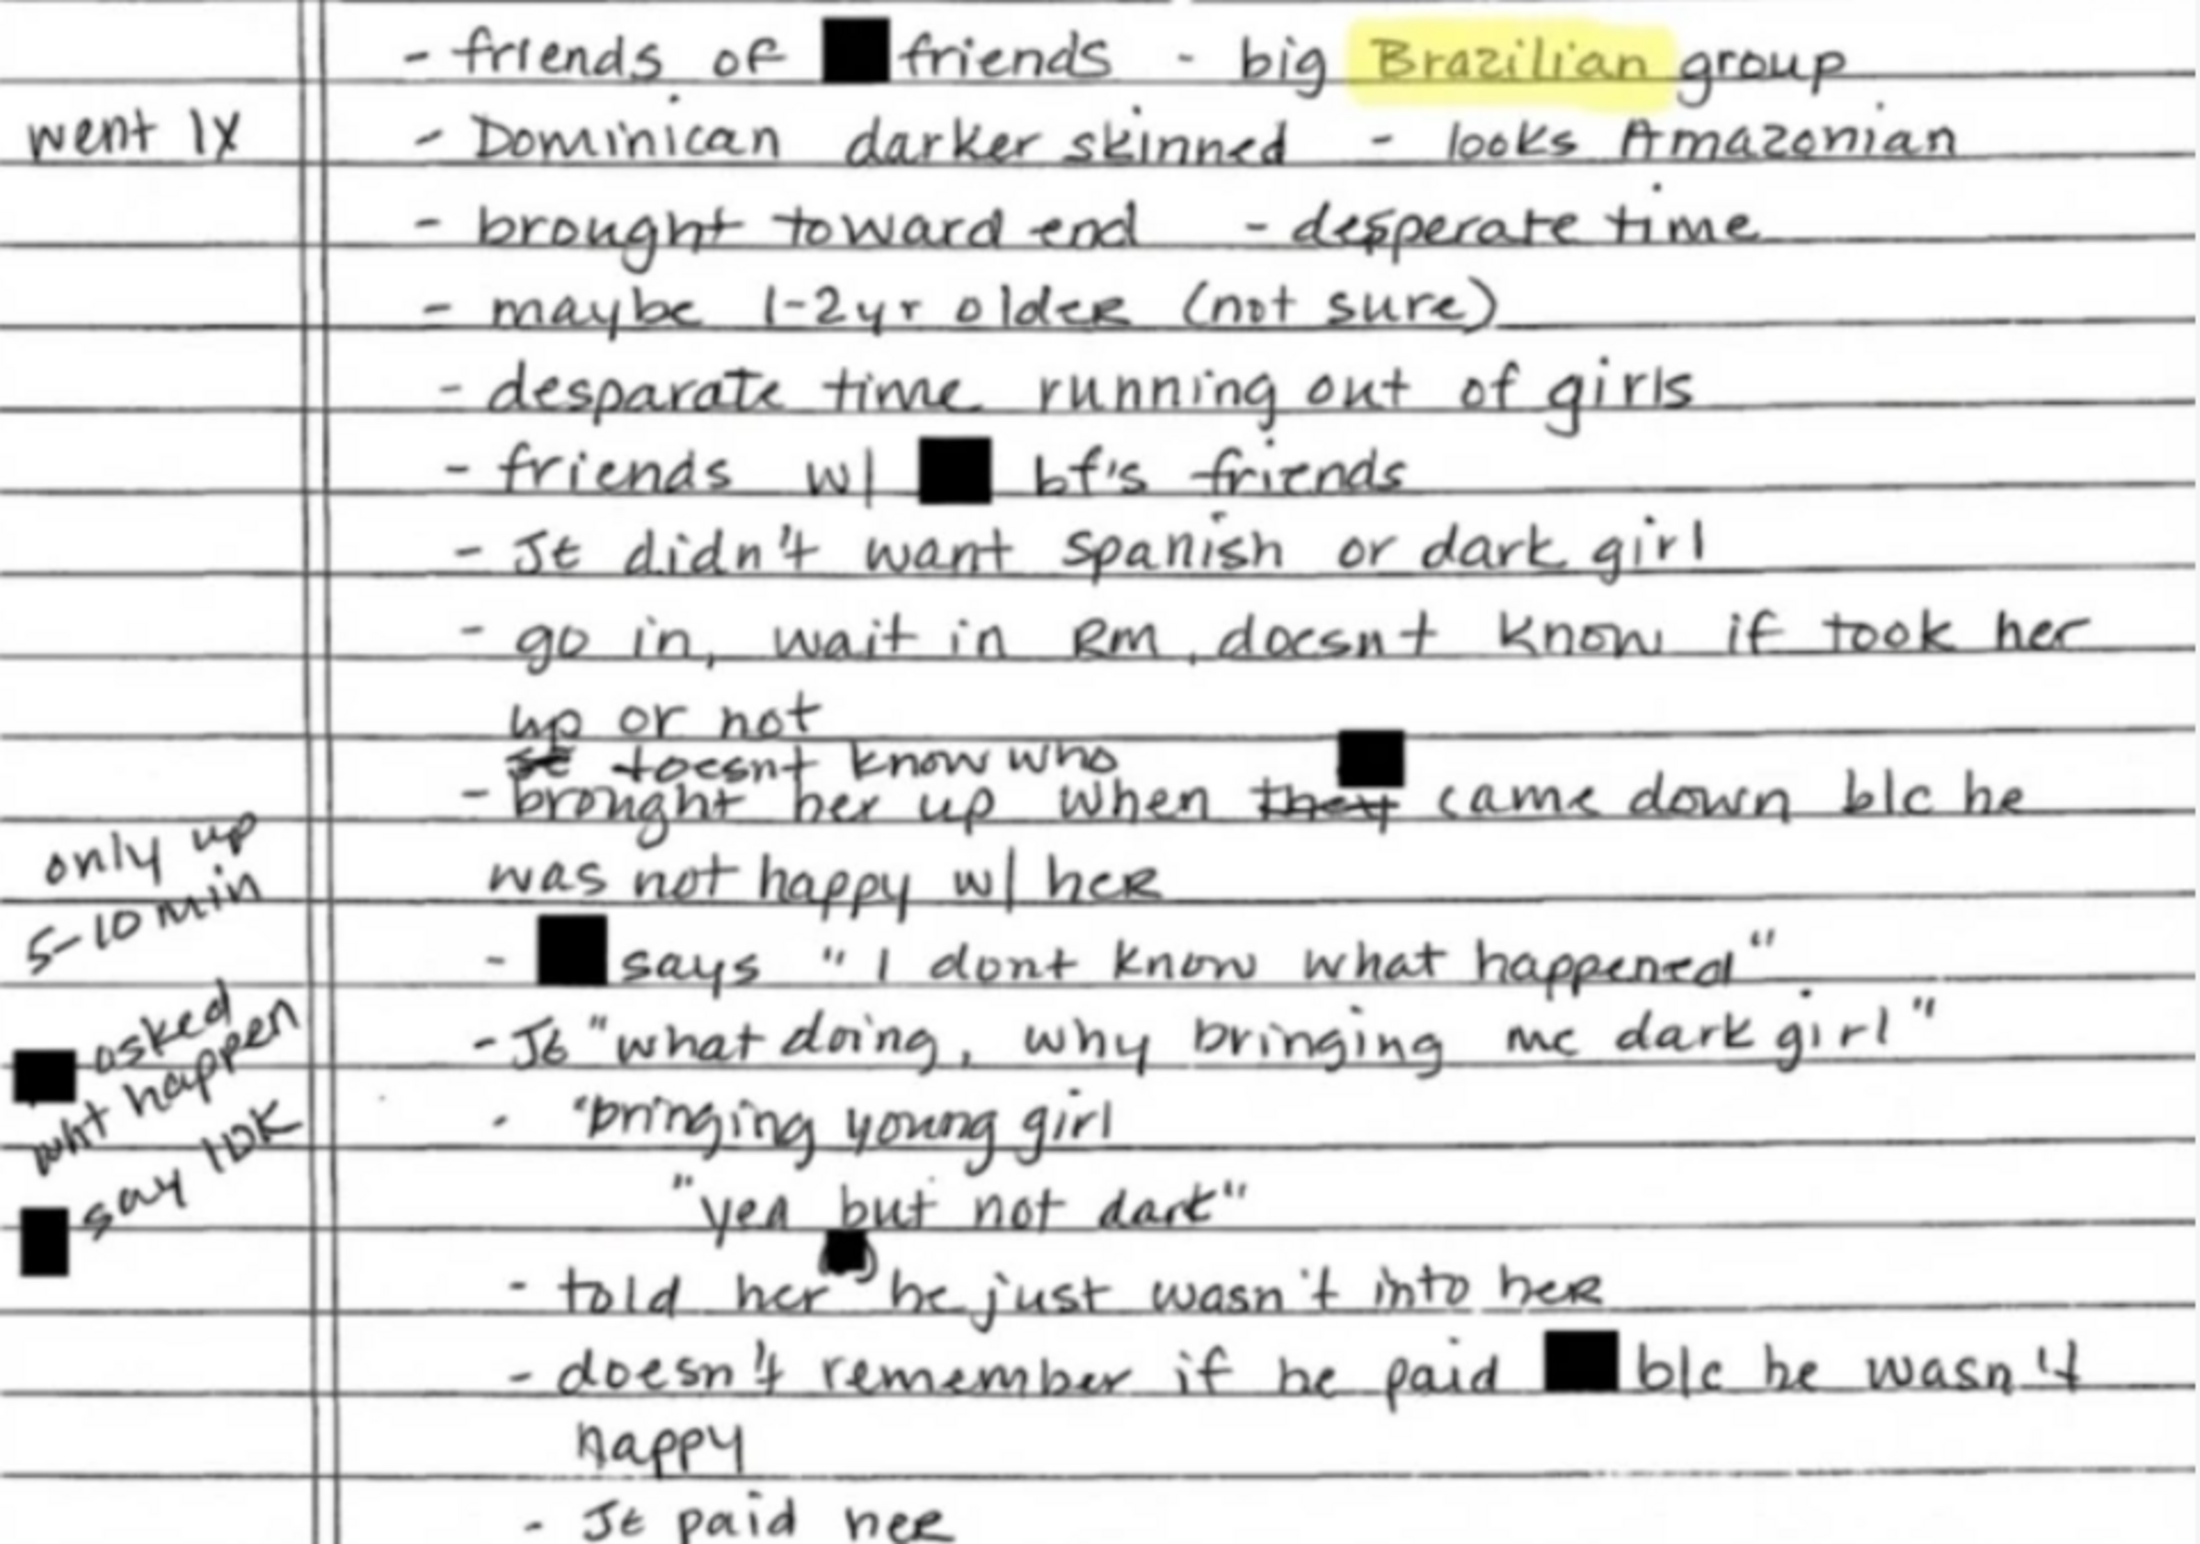 - friends of friends - big Brazilian group
went 1x
- Dominican darker skinned - looks Amazonian
- brought toward end - desperate time
- maybe 1-2yr older (not sure)
- desparate time running out of girls
- friends w/ bf's friends
- JE didn't want spanish or dark girl
- go in, wait in Rm, doesnt know if took her
up or not
JE doesnt know who
- brought her up when they came down b/c he
was not happy w/ her
only up
5-10 min
- says "I dont know what happened"
asked
what happen
- JE "what doing, why bringing me dark girl"
- "bringing young girl
say IDK
"yea but not dark"
- told her he just wasn't into her
- doesn't remember if he paid b/c he wasn't
happy
- JE paid her